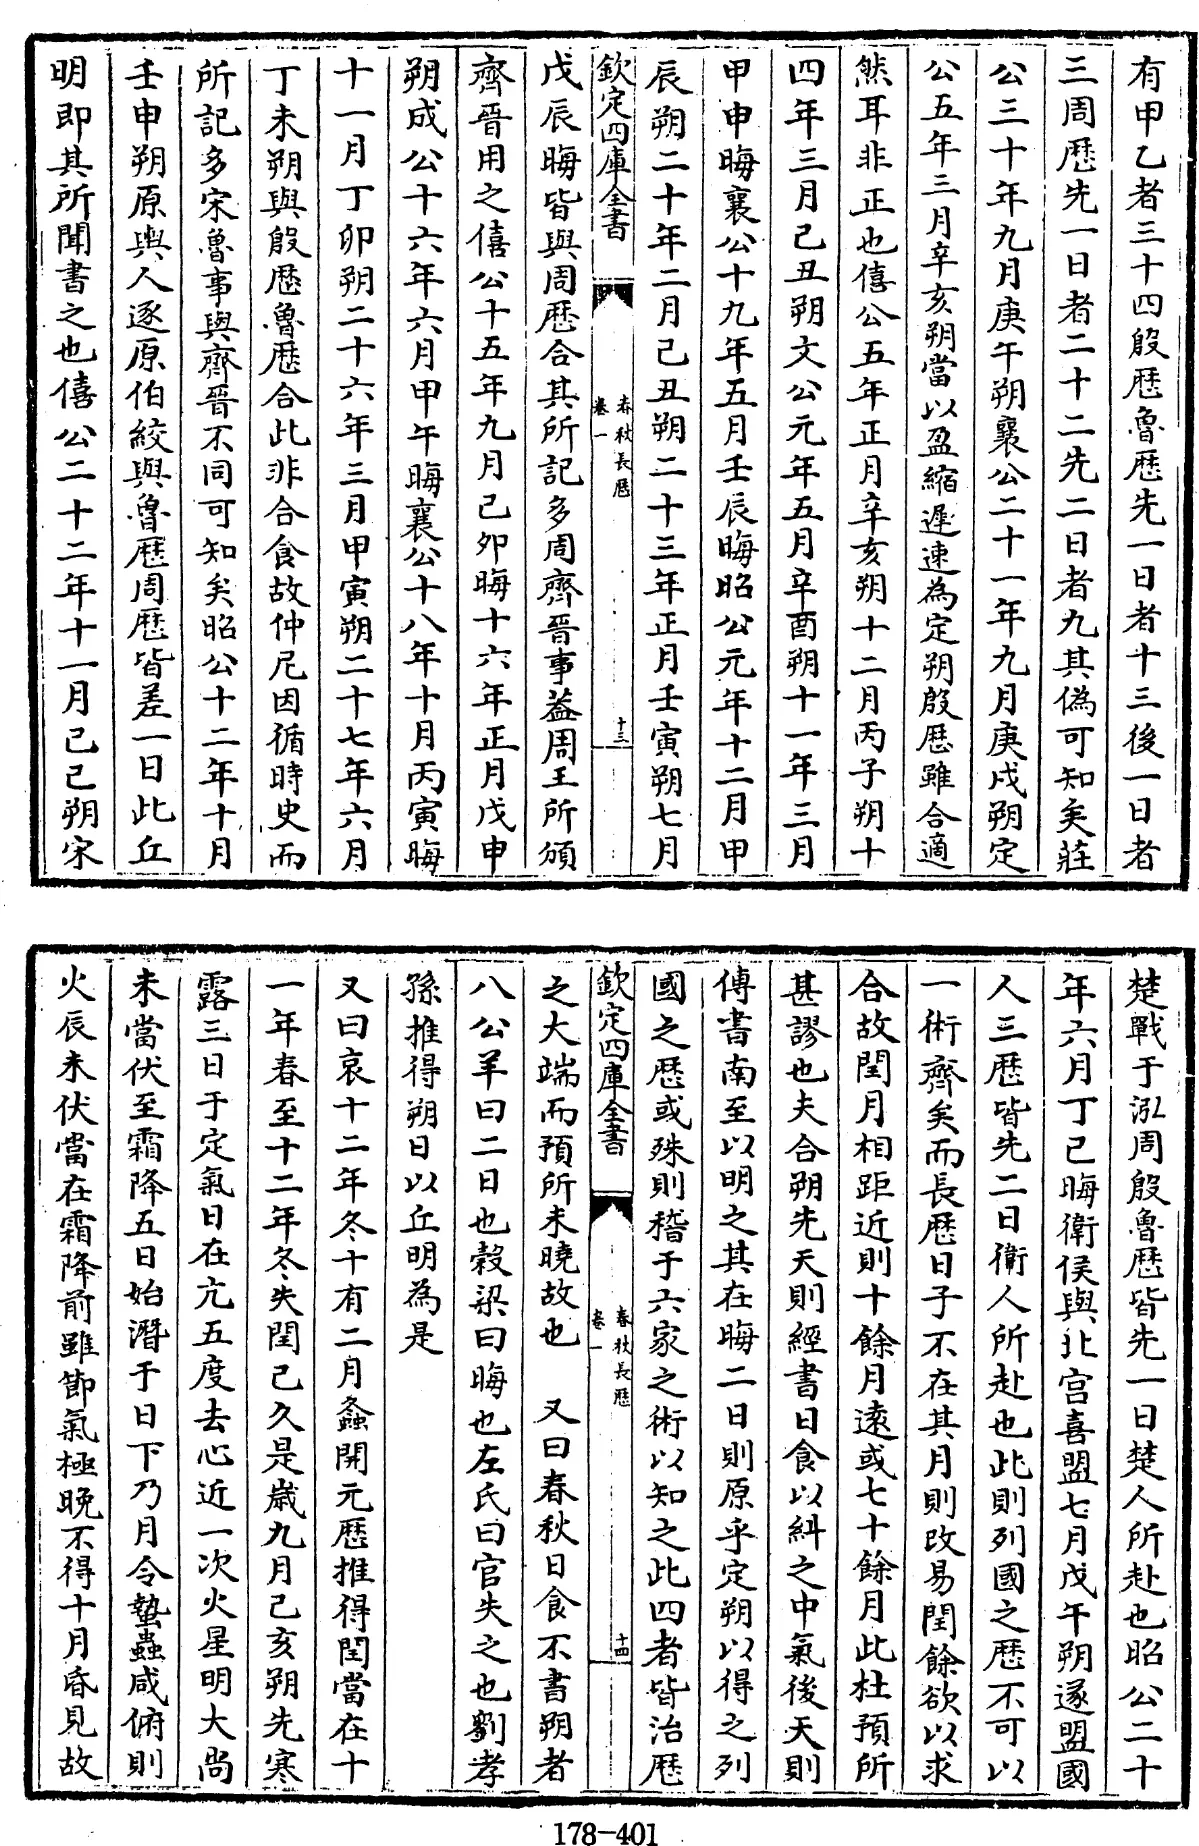 有甲乙者三十四殷歷魯歷先一日者十三後一日者
三周歷先一日者二十二先二日者九其偽可知矣莊
公三十年九月庚午朔襄公二十一年九月庚戌朔定
公五年三月辛亥朔當以盈縮遲速為定朔殷歷雖合適
然耳非正也僖公五年正月辛亥朔十二月丙子朔十
四年三月己丑朔文公元年五月辛酉朔十一年三月
甲申晦襄公十九年五月壬辰晦昭公元年十二月甲
辰朔二十年二月己丑朔二十三年正月壬寅朔七月
欽定四庫全書
春秋長歷
卷一
十三
戊辰晦皆與周歷合其所記多周齊晉事葢周王所頒
齊晉用之僖公十五年九月己卯晦十六年正月戊申
朔成公十六年六月甲午晦襄公十八年十月丙寅晦
十一月丁卯朔二十六年三月甲寅朔二十七年六月
丁未朔與殷歷魯歷合此非合食故仲尼因循時史而
所記多宋魯事與齊晉不同可知矣昭公十二年十月
壬申朔原輿人逐原伯絞與魯歷周歷皆差一日此丘
明即其所聞書之也僖公二十二年十一月己巳朔宋
楚戰于泓周殷魯歷皆先一日楚人所赴也昭公二十
年六月丁巳晦衛侯與北宫喜盟七月戊午朔遂盟國
人三歷皆先二日衛人所赴也此則列國之歷不可以
一術齊矣而長歷日子不在其月則改易閏餘欲以求
合故閏月相距近則十餘月遠或七十餘月此杜預所
甚謬也夫合朔先天則經書日食以糾之中氣後天則
傳書南至以明之其在晦二日則原乎定朔以得之列
國之歷或殊則稽于六家之術以知之此四者皆治歷
欽定四庫全書
春秋長歷
卷一
十四
之大端而預所未曉故也 又曰春秋日食不書朔者
八公羊曰二日也穀梁曰晦也左氏曰官失之也劉孝
孫推得朔日以丘明為是
又曰哀十二年冬十有二月螽開元歷推得閏當在十
一年春至十二年冬失閏已久是嵗九月己亥朔先寒
露三日于定氣日在亢五度去心近一次火星明大尚
未當伏至霜降五日始潛于日下乃月令蟄蟲咸俯則
火辰未伏當在霜降前雖節氣極晚不得十月昏見故
178-401